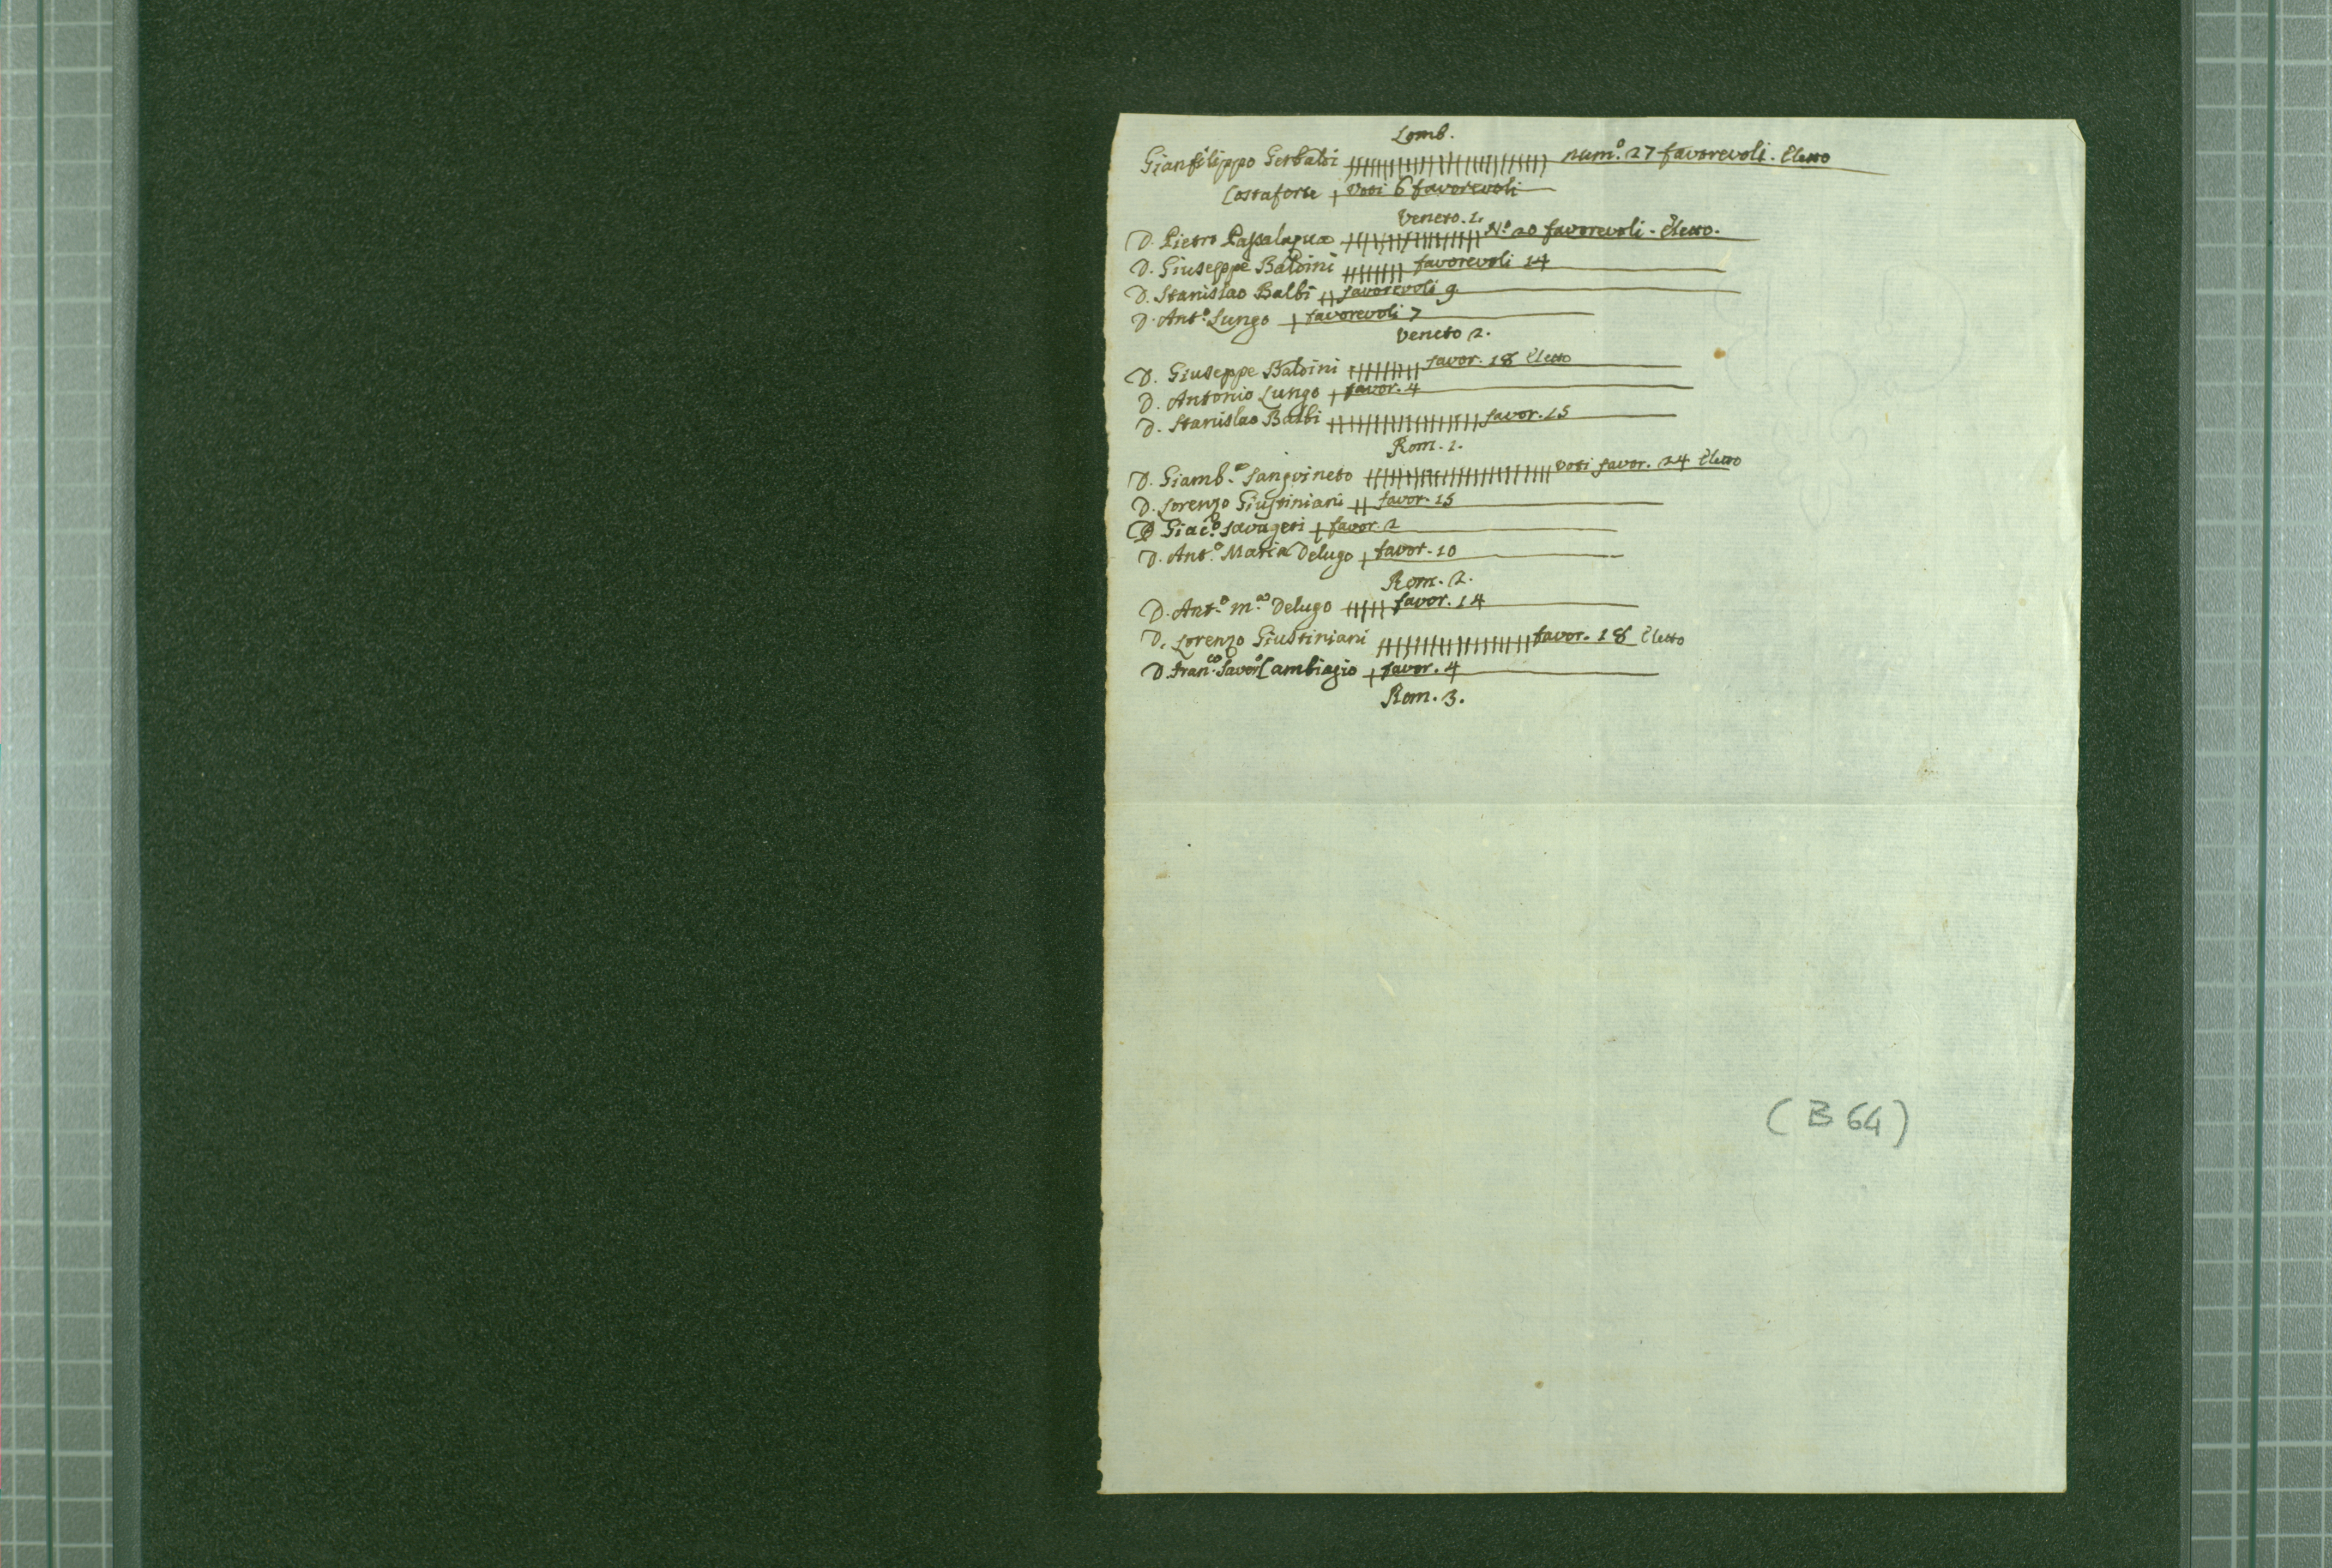 Lomb.
Gianfilippo Gerbaldi num.º 27 favorevoli. Eletto
Costaforte voti 6 favorevoli
Veneto. 1.
D. Pietro Passalaqua N.º 20 favorevoli. Eletto.
D. Giuseppe Baldini favorevoli 14
D. Stanislao Balbi favorevoli 9
D. Ant.º Lungo favorevoli 7
Veneto 2.
D. Giuseppe Baldini favor. 18 Eletto
D. Antonio Lungo favor. 4
D. Stanislao Balbi favor. 15
Rom. 1.
D. Giamb.ª Sanguineto voti favor. 24 Eletto
D. Lorenzo Giustiniani favor. 15
D. Giac.º favor. 2
D. Ant.º Maria Delugo favor. 10
Rom. 2.
D. Ant.º m.ª Delugo favor. 14
D. Lorenzo Giustiniani favor. 18 Eletto
D. Fran.co Saver.º Cambiagio favor. 4
Rom. 3.
(B 64)